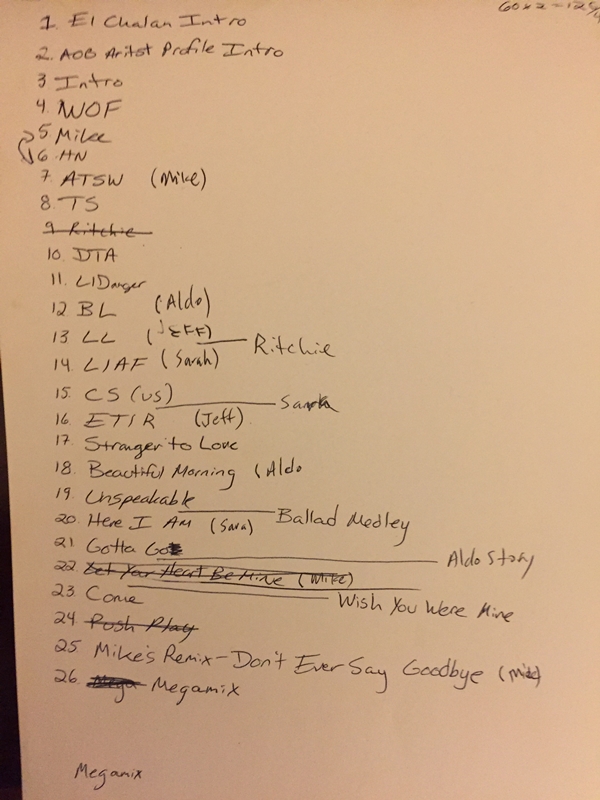 60x2=125/4
1. El Chalan Intro
2. AOB Aritst Profile Intro
3 Intro
4. WOF
5 Mike
6 HN
7. ATSW (Mike)
8. TS
9 Ritchie
10. DTA
11. LIDanger
12 BL (Aldo)
13 LL (JEFF)
Ritchie
14. LIAF (Sarah)
15. CS (US)
Sarah
16. ETIR (Jeff)
17. Stranger to Love
18. Beautiful Morning (Aldo
19. Unspeakable
Ballad Medley
20. Here I Am (Sara)
21 Gotta Go
Aldo Story
22. Let Your Heart Be Mine (Mike)
23 Come
Wish You Were Mine
24. Push Play
25 Mike's Remix - Don't Ever Say Goodbye (Mike)
26. Mega Megamix
Megamix